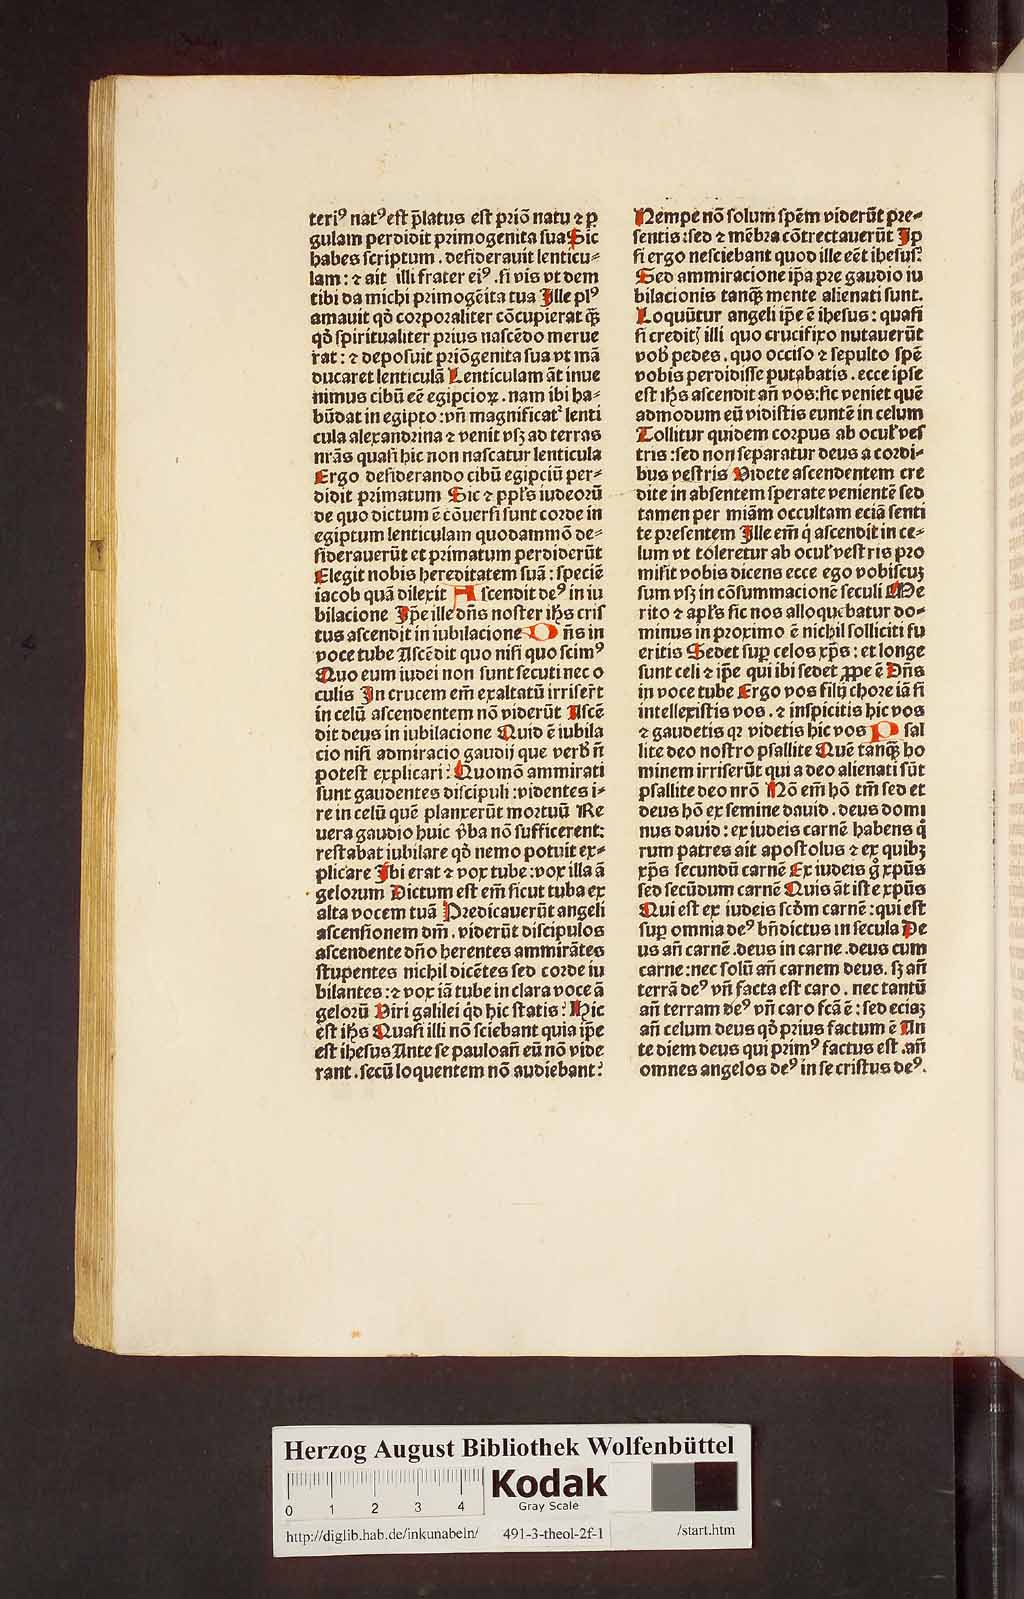 teriꝰ natꝰ est p̄latus est priō natu ⁊ p
gulam perdidit primogenita sua Sic
habes scriptum . desiderauit lenticu⸗
lam : ⁊ ait illi frater eiꝰ . si vis vt dem
tibi da michi primogēita tua Ille plꝰ
amauit qð corporaliter cōcupierat q̄ꝫ
qð spiritualiter prius nascēdo merue
rat : ⁊ deposuit priōgenita sua vt mā
ducaret lenticulā Lenticulam āt inue
nimus cibū eē egipcioꝝ . nam ibi ha⸗
būdat in egipto : vn̄ magnificat᷑ lenti
cula alexandrina ⁊ venit vsꝫ ad terras
nrās quasi hic non nascatur lenticula
Ergo desiderando cibū egipciū per⸗
didit primatum Sic ⁊ ppl̄s iudeorū
de quo dictum ē cōuersi sunt corde in
egiptum lenticulam quodammō de⸗
siderauerūt et primatum perdiderūt
Elegit nobis hereditatem suā : speciē
iacob quā dilexit Ascendit deꝰ in iu
bilacione Ip̄e ille dn̄s noster ih̄s cris
tus ascendit in iubilacione Dn̄s in
voce tube Ascēdit quo nisi quo scimꝰ
Quo eum iudei non sunt secuti nec o
culis In crucem em̄ exaltatū irriser̄t
in celū ascendentem nō viderūt Ascē
dit deus in iubilacione Quid ē iubila
cio nisi admiracio gaudij que verb̄ n̄
potest explicari : Quomō ammirati
sunt gaudentes discipuli : videntes i⸗
re in celū quē planxerūt mortuū Re
uera gaudio huic v̄ba nō sufficerent :
restabat iubilare qð nemo potuit ex⸗
plicare Ibi erat ⁊ vox tube : vox illa ā
gelorum Dictum est em̄ sicut tuba ex
alta vocem tuā Predicauerūt angeli
ascensionem dn̄i . viderūt discipulos
ascendente dn̄o herentes ammirātes
stupentes nichil dicētes sed corde iu
bilantes : ⁊ vox iā tube in clara voce ā
gelorū Viri galilei qͥd hic statis : Hic
est ih̄s Quasi illi nō sciebant quia ip̄e
est ihesus Ante se pauloan̄ eū nō vide
rant . secū loquentem nō audiebant :
Nempe nō solum spēm viderūt pre⸗
sentis : sed ⁊ mēbra cōtrectauerūt Ip
si ergo nesciebant quod ille eēt ihesus :
Sed ammiracione ip̄a pre gaudio iu
bilacionis tanq̄ꝫ mente alienati sunt .
Loquūtur angeli ip̄e ē ihesus : quasi
si creditꝭ illi quo crucifixo nutauerūt
vob̄ pedes . quo occiso ⁊ sepulto spē
vobis perdidisse putabatis . ecce ipse
est ih̄s ascendit an̄ vos : sic veniet quē
admodum eū vidistis euntē in celum
Tollitur quidem corpus ab ocul̓ ves
tris : sed non separatur deus a cordi⸗
bus vestris Videte ascendentem cre
dite in absentem sperate venientē sed
tamen per miām occultam eciā senti
te presentem Ille em̄ qͥ ascendit in ce⸗
lum vt tolleretur ab ocul̓ vestris pro
misit vobis dicens ecce ego vobiscuꝫ
sum vsꝫ in cōsummacionē seculi Me
rito ⁊ apl̄s sic nos alloquebatur do⸗
minus in proximo ē nichil solliciti fu
eritis Sedet sup̱ celos xp̄s : et longe
sunt celi ⁊ ip̄e qui ibi sedet ꝓpe ē Dn̄s
in voce tube Ergo vos filij chore iā si
intellexistis vos . ⁊ inspicitis hic vos
⁊ gaudetis qꝛ videtis hic vos Psal
lite deo nostro psallite Quē tanq̄ꝫ ho
minem irriserūt qui a deo alienati sūt
psallite deo nrō Nō em̄ hō tm̄ sed et
deus hō ex semine dauid . deus domi
nus dauid : ex iudeis carnē habens qͦ
rum patres ait apostolus ⁊ ex quibꝫ
xp̄s secundū carnē Ex iudeis gͦ xp̄us
sed secūdum carnē Quis āt iste xp̄us
Qui est ex iudeis scd̄m carnē : qui est
sup̱ omnia deꝰ bn̄dictus in secula De
us an̄ carnē . deus in carne . deus cum
carne : nec solū an̄ carnem deus . sꝫ an̄
terrā deꝰ vn̄ facta est caro . nec tantū
an̄ terram deꝰ vn̄ caro fcā ē : sed eciaꝫ
an̄ celum deus qð prius factum ē An
te diem deus qui primꝰ factus est . an̄
omnes angelos deꝰ in se cristus deꝰ .
Herzog August Bibliothek Wolfenbüttel
0 1 2 3 4
Kodak
Gray Scale
http://diglib.hab.de/inkunabeln/ 491-3-theol-2f-1 /start.htm